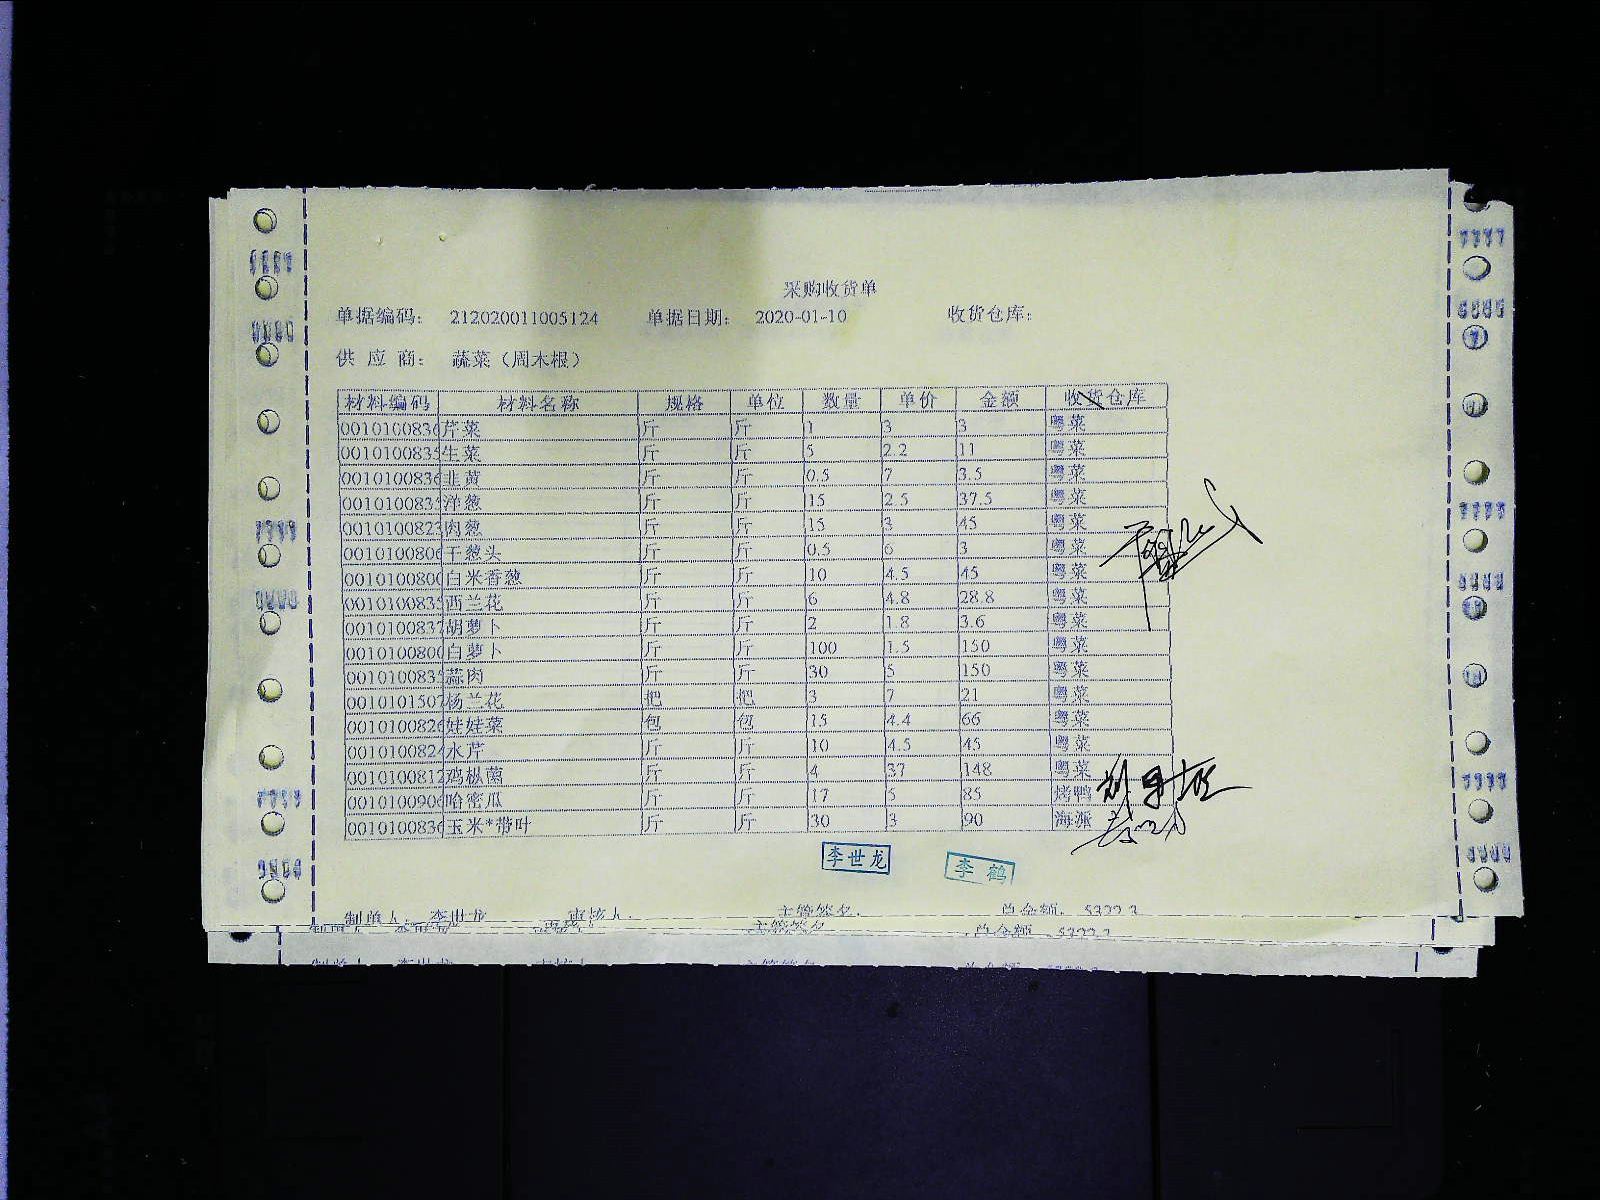 采购收货单
单据编码: 212020011005124 单据日期: 2020-01-10 收货仓库:
供 应 商: 蔬菜（周木根）
材料编码 材料名称 规格 单位 数量 单价 金额 收货仓库
0010100836 芹菜 斤 斤 1 3 3 粤菜
0010100835 生菜 斤 斤 5 2.2 11 粤菜
0010100836 韭黄 斤 斤 0.5 7 3.5 粤菜
0010100835 洋葱 斤 斤 15 2.5 37.5 粤菜
0010100823 肉葱 斤 斤 15 3 45 粤菜
0010100806 干葱头 斤 斤 0.5 6 3 粤菜
0010100800 白米香葱 斤 斤 10 4.5 45 粤菜
0010100835 西兰花 斤 斤 6 4.8 28.8 粤菜
0010100837 胡萝卜 斤 斤 2 1.8 3.6 粤菜
0010100800 白萝卜 斤 斤 100 1.5 150 粤菜
0010100835 蒜肉 斤 斤 30 5 150 粤菜
0010101507 杨兰花 把 把 3 7 21 粤菜
0010100826 娃娃菜 包 包 15 4.4 66 粤菜
0010100824 水芹 斤 斤 10 4.5 45 粤菜
0010100812 鸡枞菌 斤 斤 4 37 148 粤菜
0010100906 哈密瓜 斤 斤 17 5 85 烤鸭
0010100836 玉米*带叶 斤 斤 30 3 90 海派
李世龙 李鹤
制单人: 李世龙 审核人: 主管签名: 总金额: